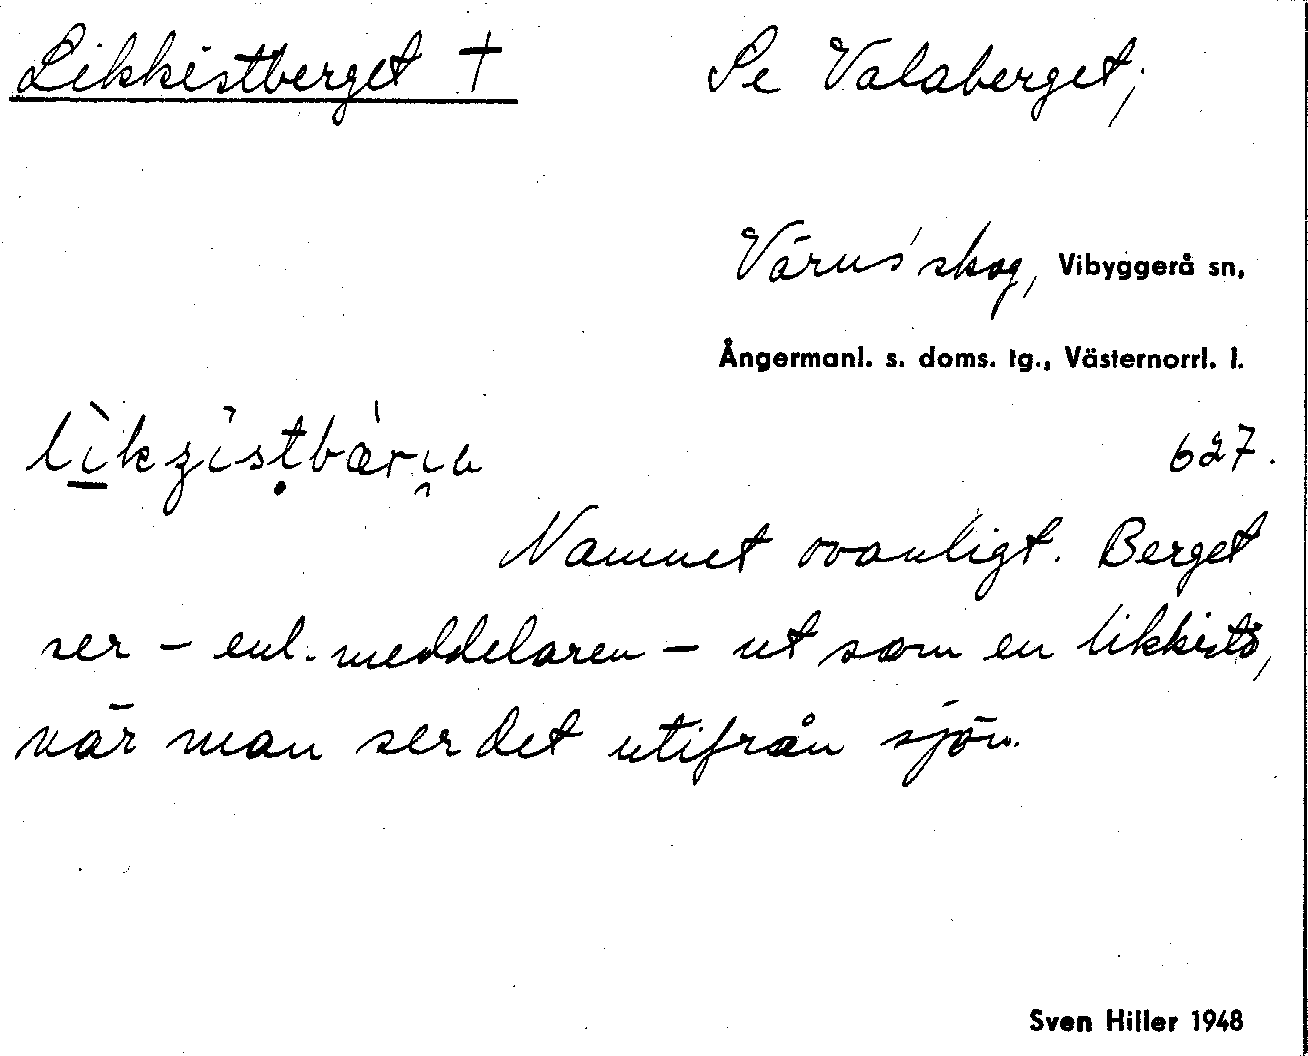 Likkistberget + Se Valaberget;
Värns' skog, Vibyggerå sn,
Ångermanl. s. doms. tg., Västernorrl. l.
627.
Namnet ovanligt. Berget
ser – enl. meddelaren – ut som en likkista,
när man ser det utifrån sjön.
Sven Hiller 1948